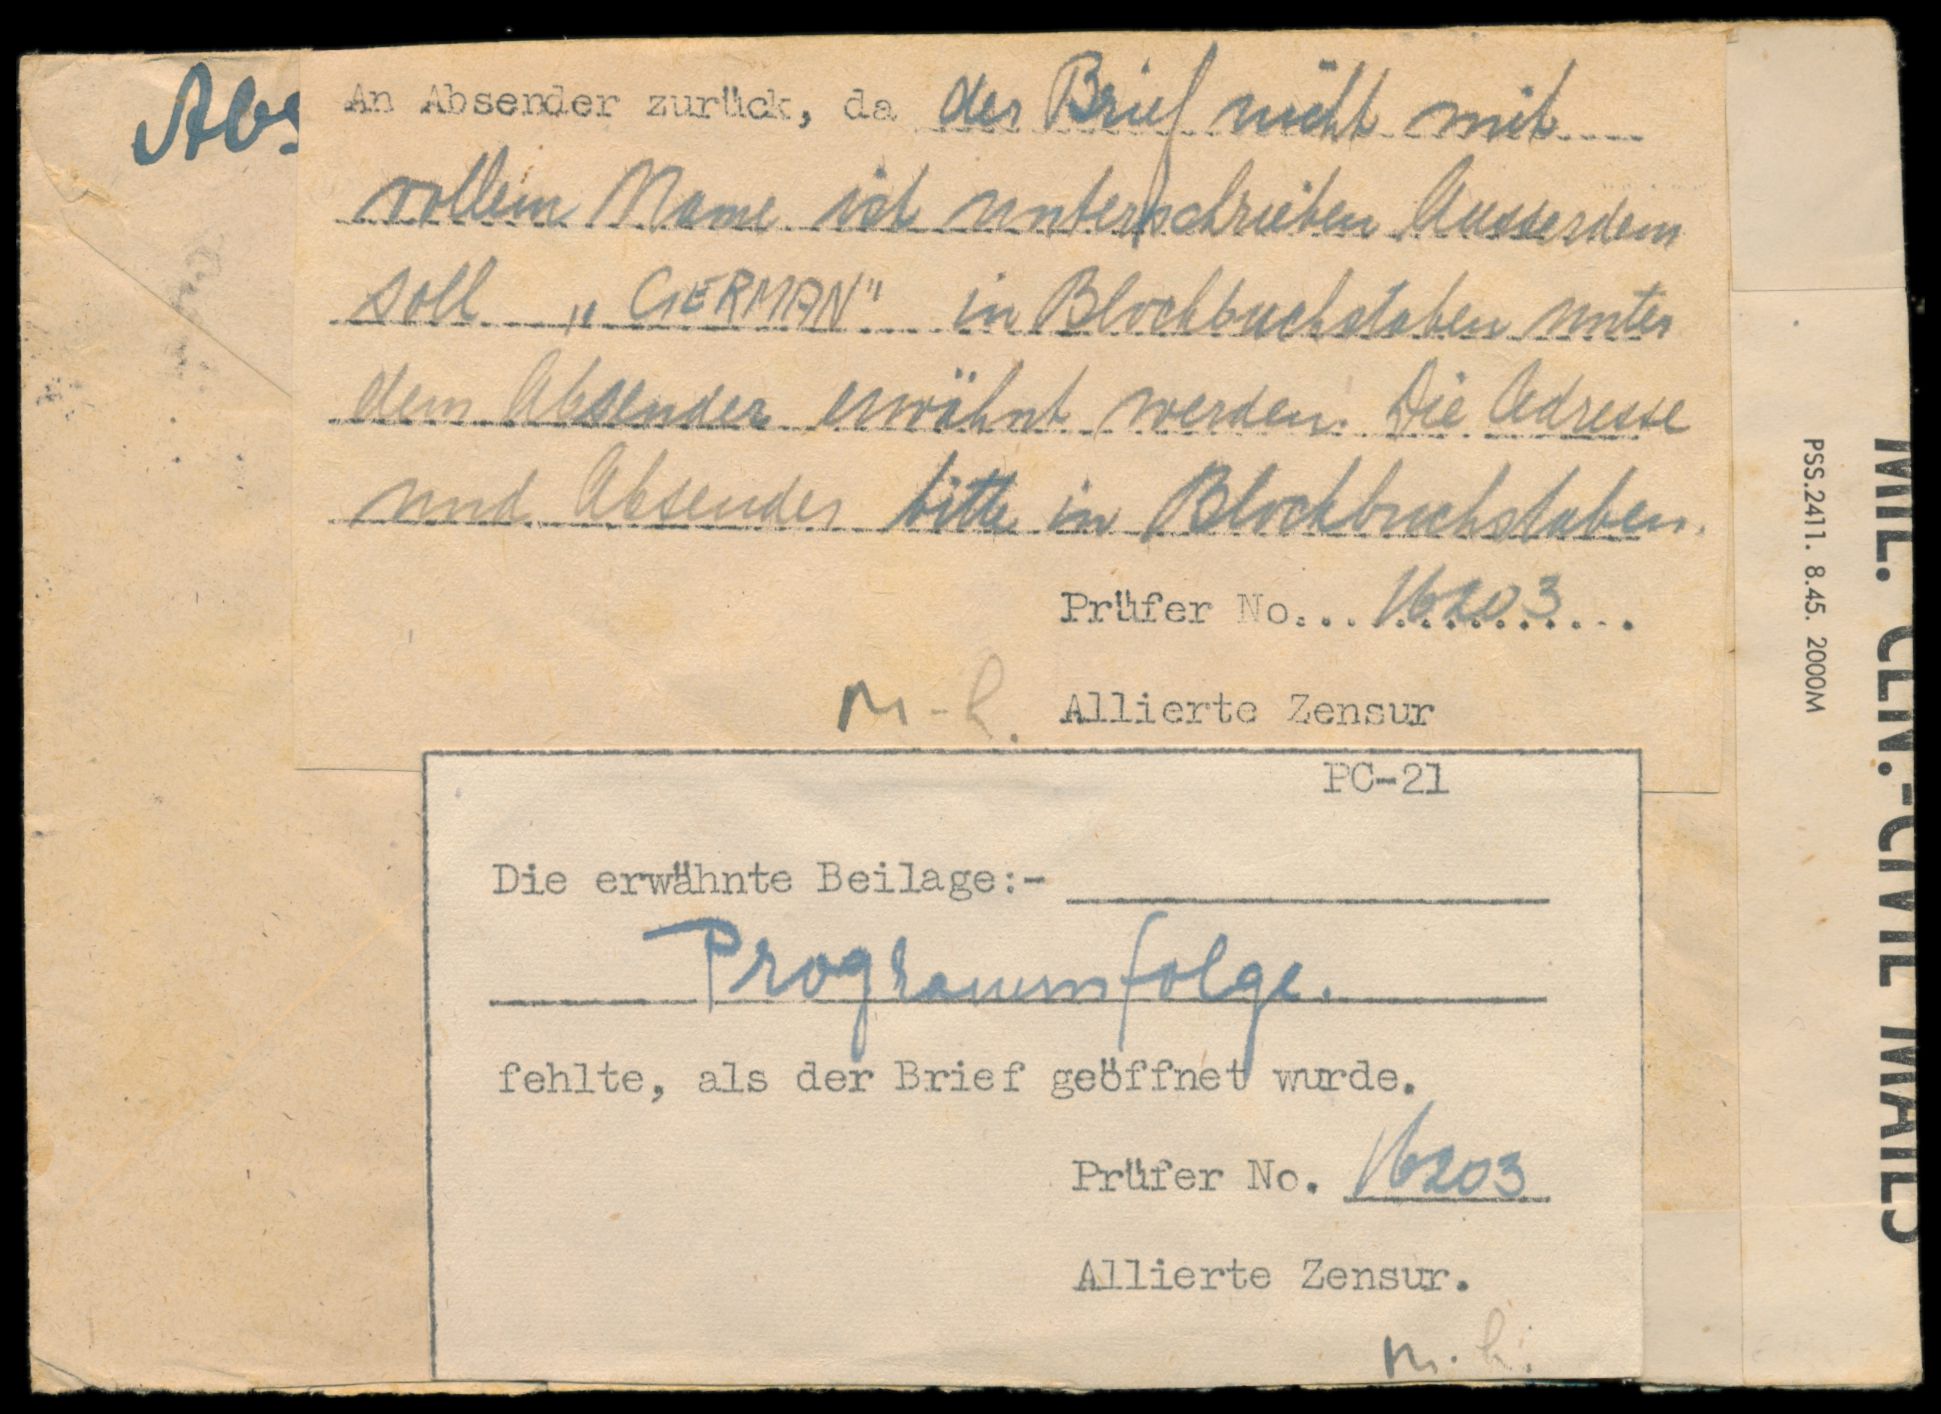 Abs
An Absender zurück, da der Brief nicht mit
vollem Name ist unterschrieben Ausserdem
soll „GERMAN" in Blockbuchstaben unter
dem Absender erwähnt werden. Die Adresse
und Absender bitte in Blockbuchstaben.
Prüfer No... 16203
Allierte Zensur
PC-21
Die erwähnte Beilage:-
Programmfolge.
fehlte, als der Brief geöffnet wurde.
Prüfer No. 16203
Allierte Zensur.
PSS.2411. 8.45. 2000M
MIL. CEN.-CIVIL MAILS